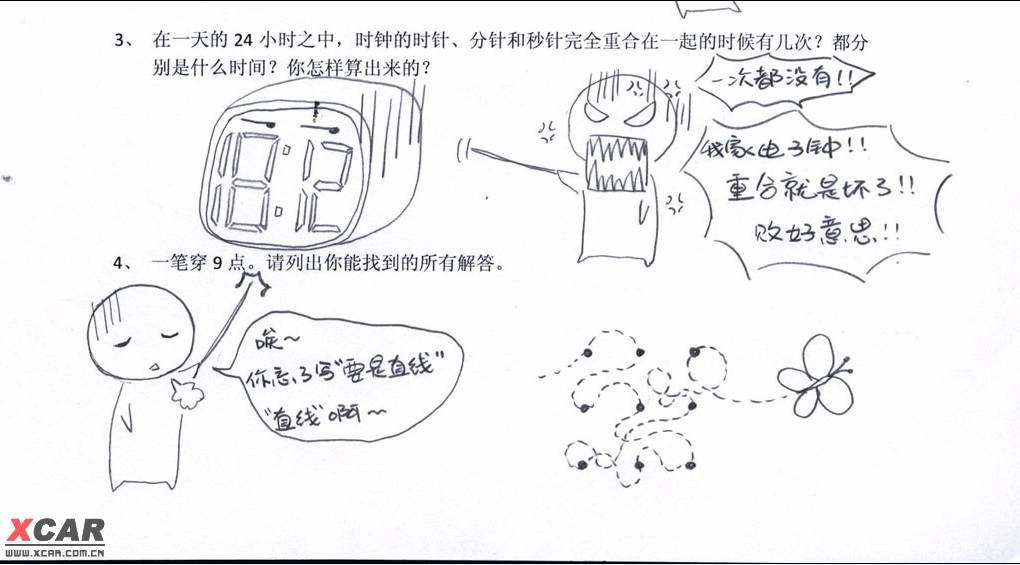 3、 在一天的 24 小时之中，时钟的时针、分针和秒针完全重合在一起的时候有几次？都分
别是什么时间？你怎样算出来的？
一次都没有!!
我家电子钟!!
重合就是坏了!!
败好意思!!
18:12
4、 一笔穿 9 点。请列出你能找到的所有解答。
唉～
你忘了写“要是直线”
“直线”啊～
XCAR
WWW.XCAR.COM.CN